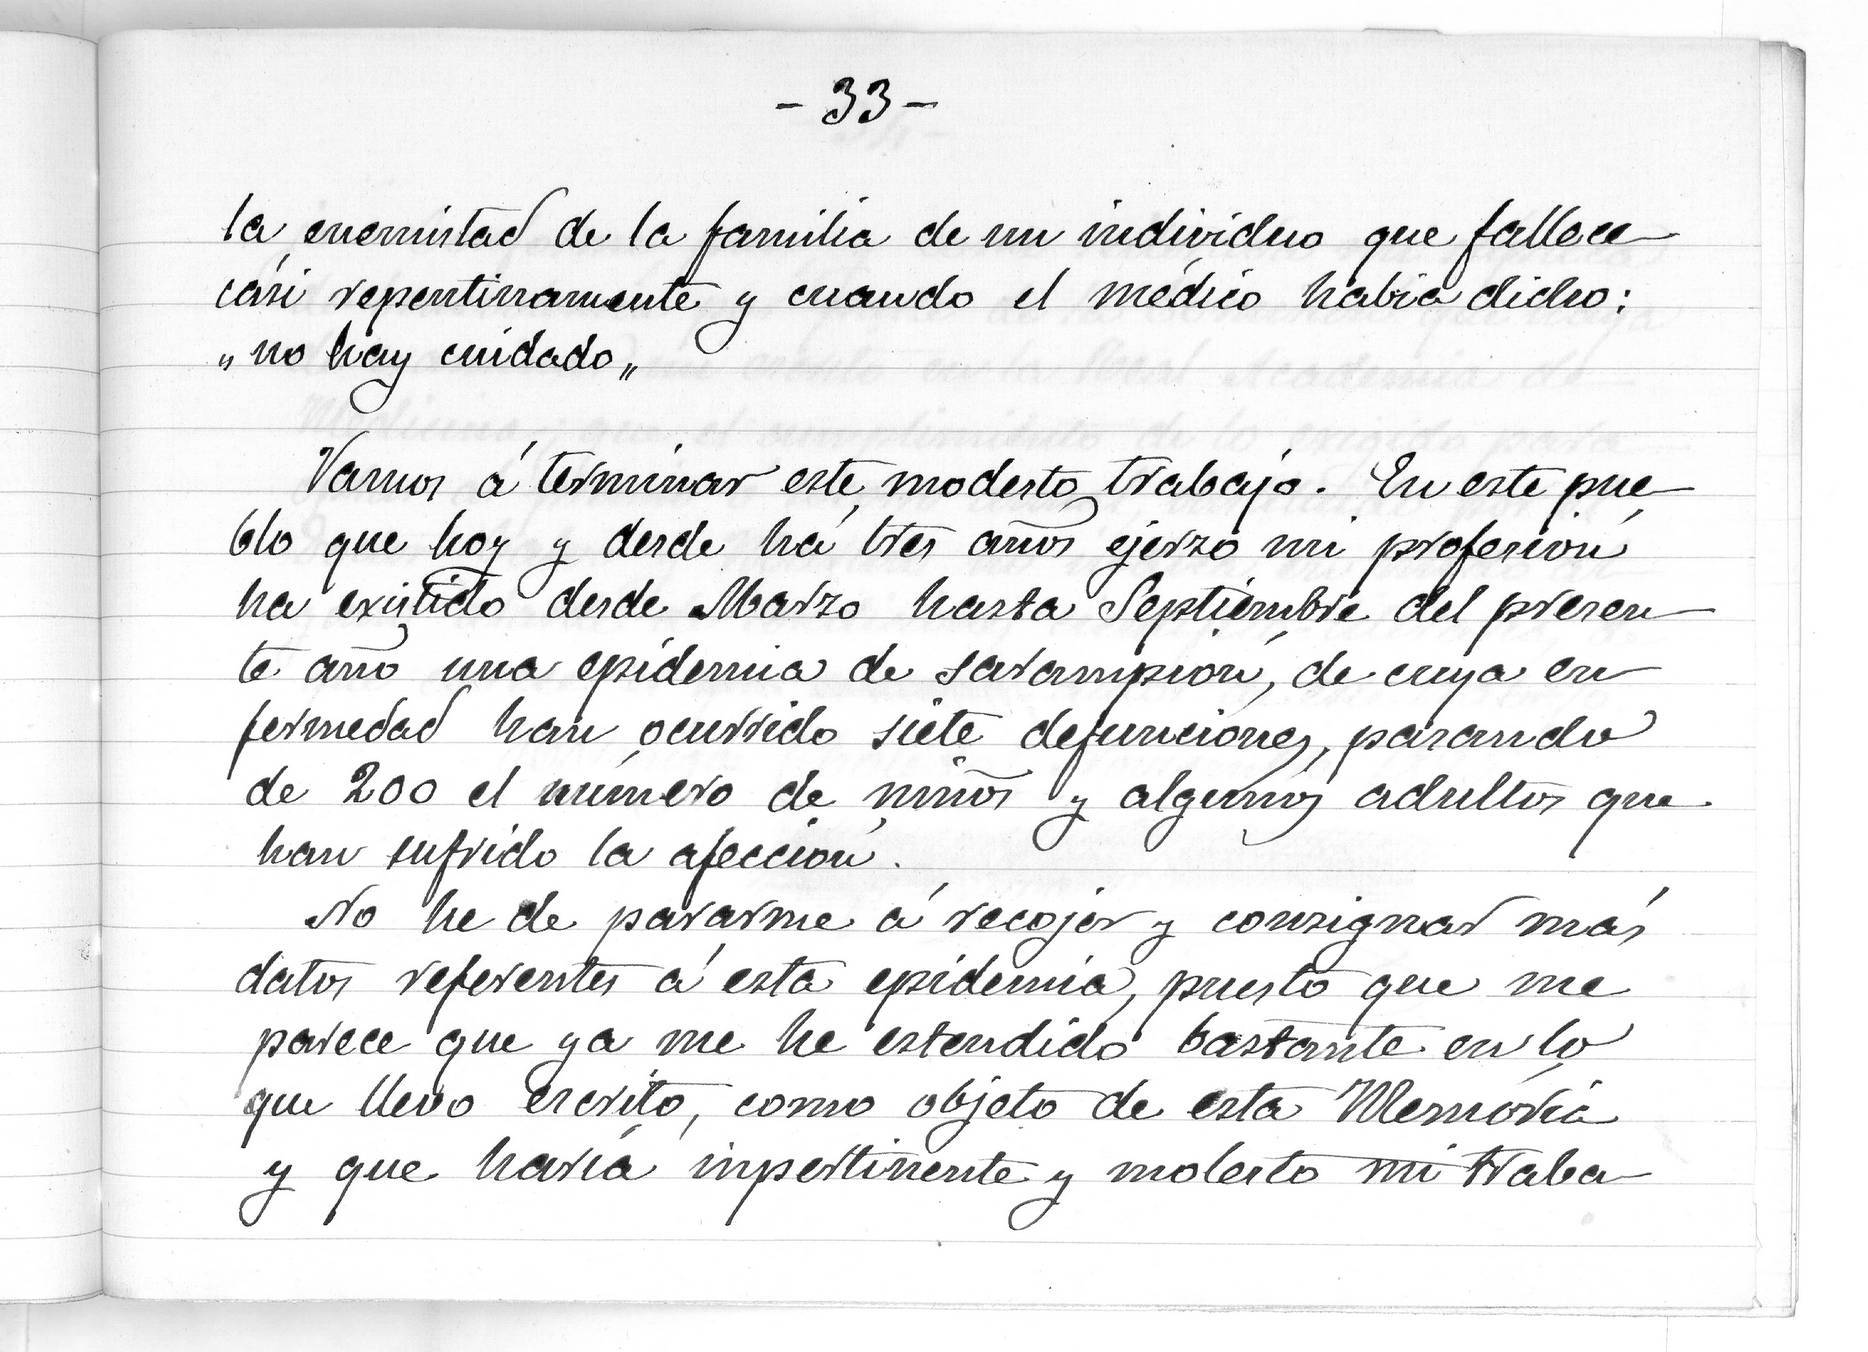 - 33 -
la enemistad de la familia de un individuo que fallece
cási repentinamente y cuando el médico habia dicho:
„no hay cuidado„
Vamos á terminar este modesto trabajo. En este pue-
blo que hoy y desde há tres años ejerzo mi profesión
ha existido desde Marzo hasta Septiembre del presen-
te año una epidemia de sarampión, de cuya en-
fermedad han ocurrido siete defunciones, pasando
de 200 el número de niños y algunos adultos que
han sufrido la afección.
No he de pararme á recojer y consignar más
datos referentes á esta epidemia, puesto que me
parece que ya me he estendido bastante en lo
que llevo escrito, como objeto de esta Memória
y que haría inpertinente y molesto mi traba-